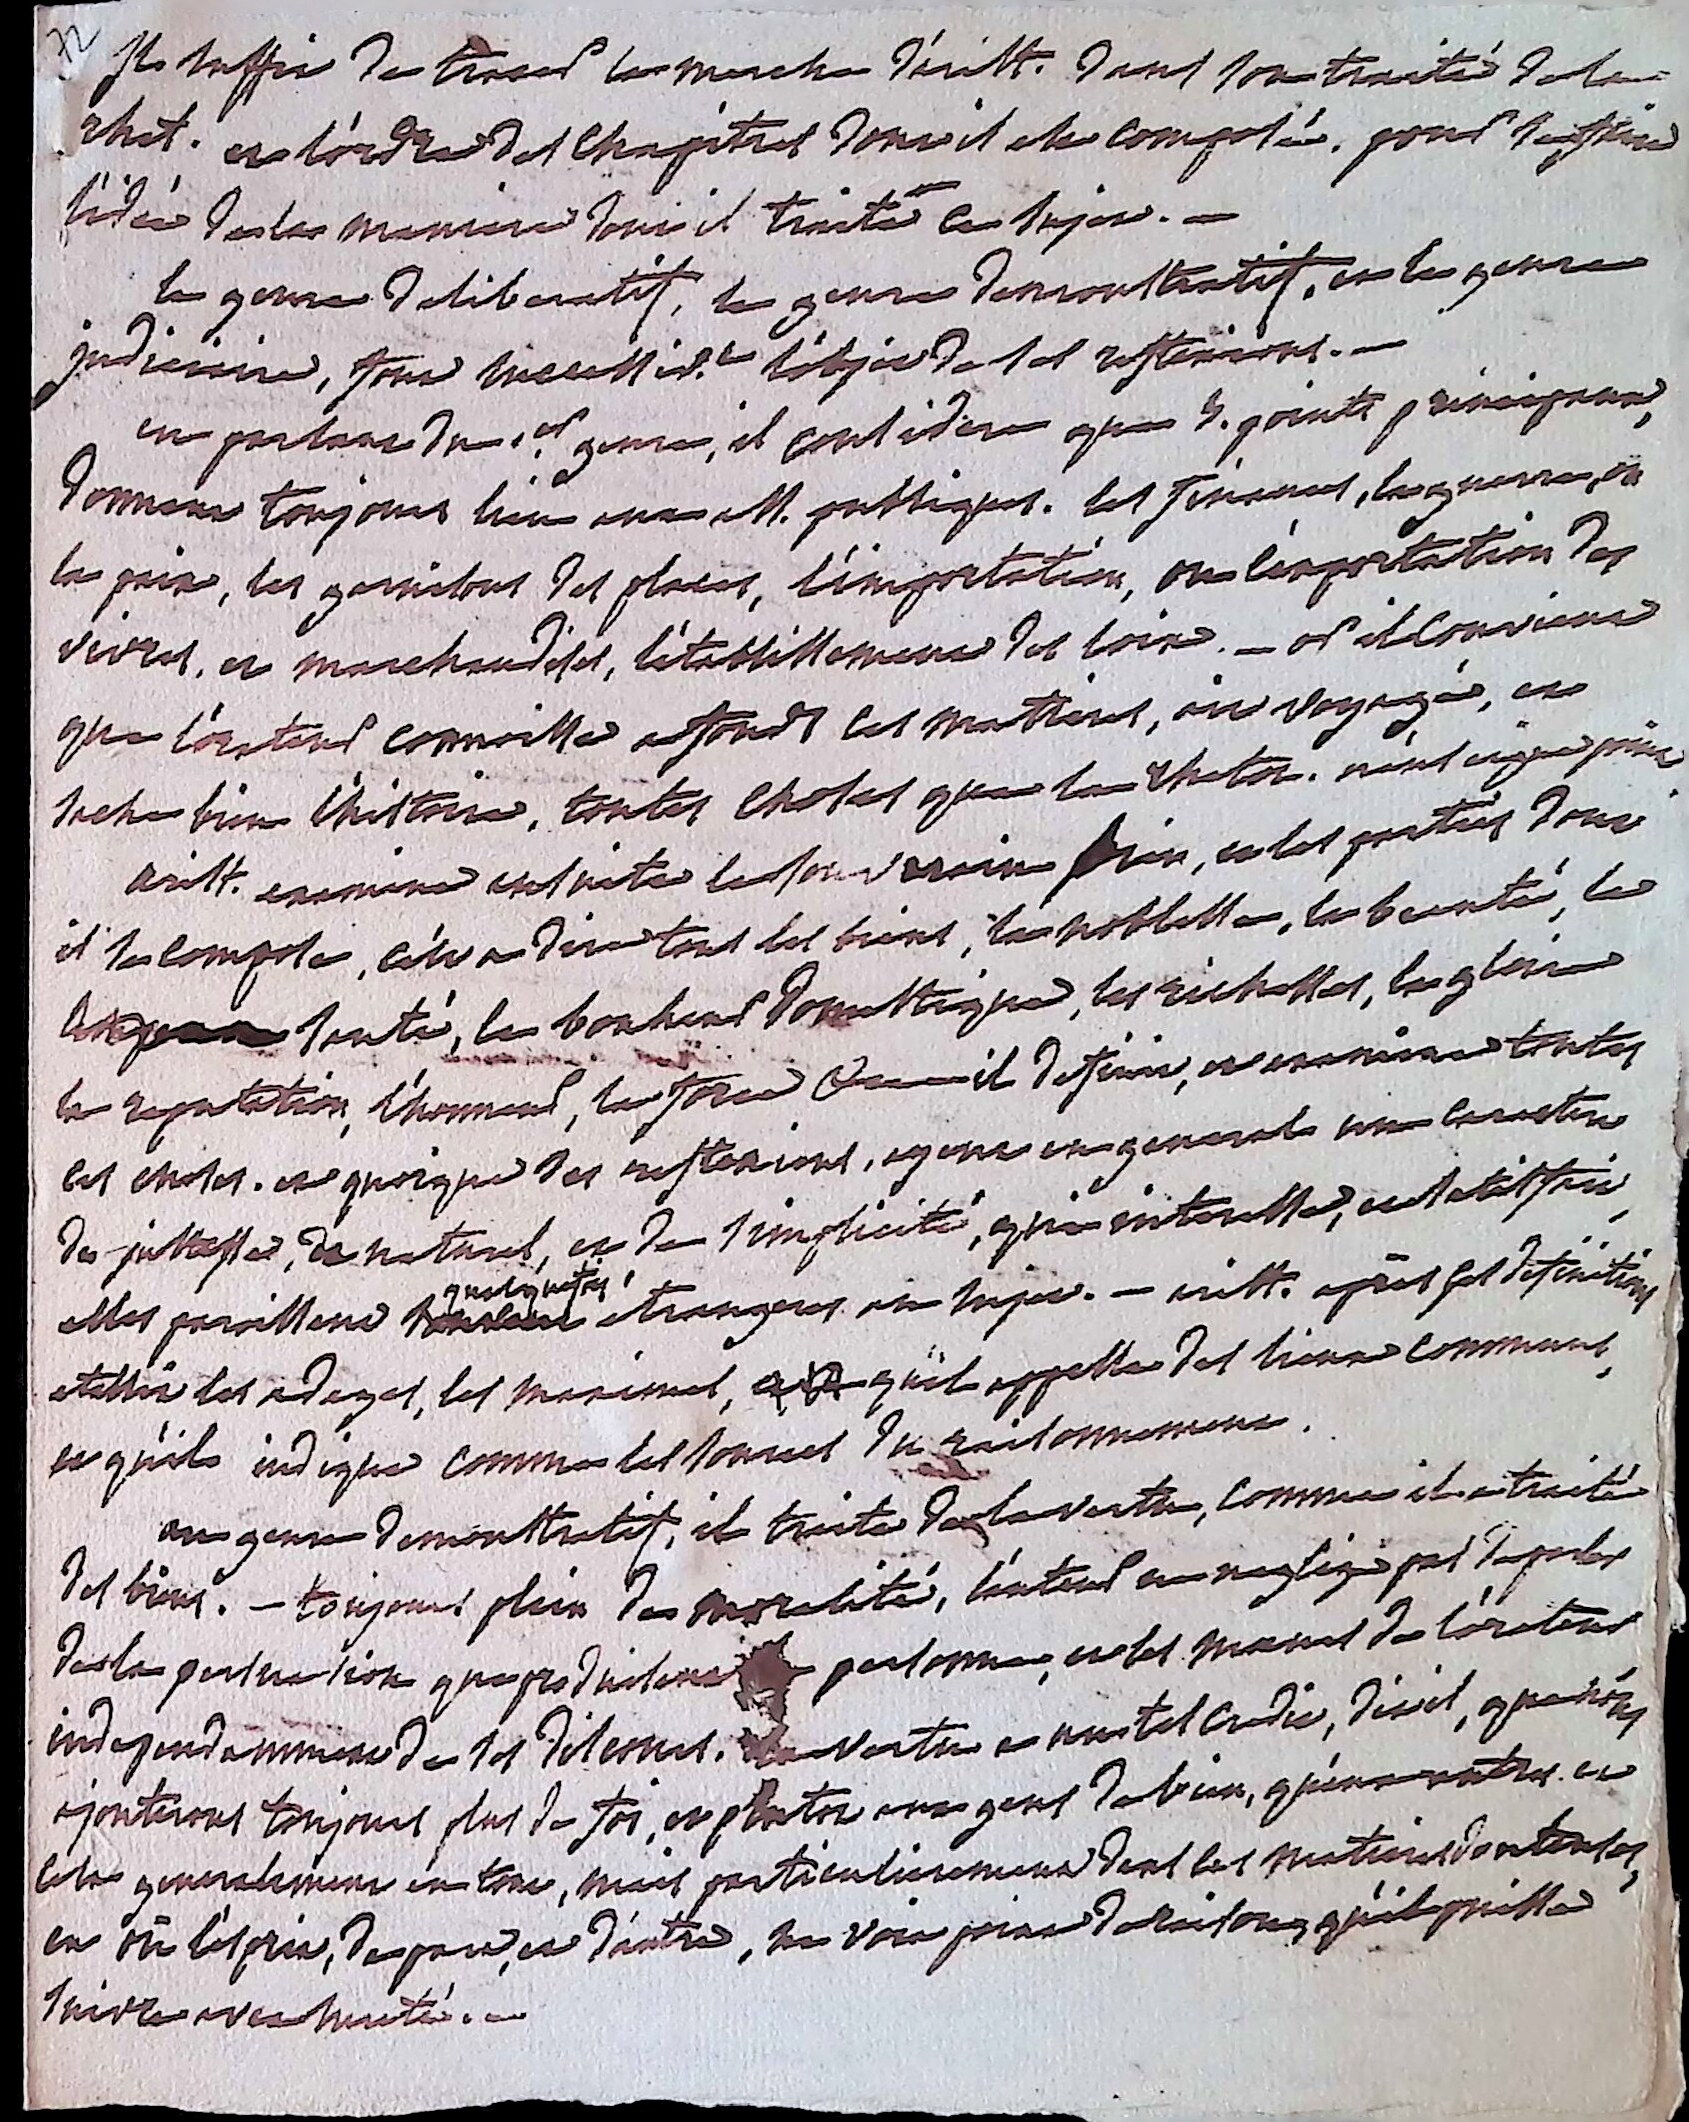 72
Il suffit de tracer la marche d'arist. dans son traité de la
rhet. et l'ordre des chapitres dont il est composé. pour saisir
l'idée de la maniere dont il traite ce sujet. —
le genre deliberatif, le genre demonstratif, et le genre
judiciaire, sont successiv.t l'objet de ses reflexions. —
en parlant du 1.er genre, il considere que 5. points principaux,
donnent toujours lieu aux ass. publiques. les finances, la guerre, et
la paix, les garnisons des places, l'importation, ou l'exportation des
vivres, et marchandises, l'établissement des loix. — or il convient
que l'orateur connoisse a fonds ces matieres, ait voyagé, et
sache bien l'histoire, toutes choses que la rhetor. n'enseigne point
arist. examine ensuite le souverain bien, et les parties dont
il se compose, c'est a dire tous les biens, la noblesse, la beauté, la
santé, le bonheur domestique, les richesses, la gloire
la reputation, l'honneur, la force & il definit, et examine toutes
ces choses. et quoique ses reflexions, ayent en general un caractere
de justesse, de naturel, et de simplicité, qui interesse, et satisfait,
elles paroissent quelquefois étrangeres au sujet. — arist. après ses definitions
etablit les adages, les maximes, qu'il appelle des lieux communs,
et qu'il indique comme les sources du raisonnement.
au genre demonstratif, il traite de la vertu, comme il a traité
des biens. — toujours plein de moralité, l'auteur ne neglige pas de parler
de la persuasion que produisent personne, et les moeurs de l'orateur
independamment de ses discours. la vertu a un tel credit, dit il, que nous
ajouterons toujours plus de foi, et plutot aux gens de bien, qu'aux autres. et
cela generalement en tout, mais particulierement dans les matieres douteuses,
et où l'esprit, de part, et d'autre, ne voit point de raisons qu'il puisse
suivre avec sureté. —